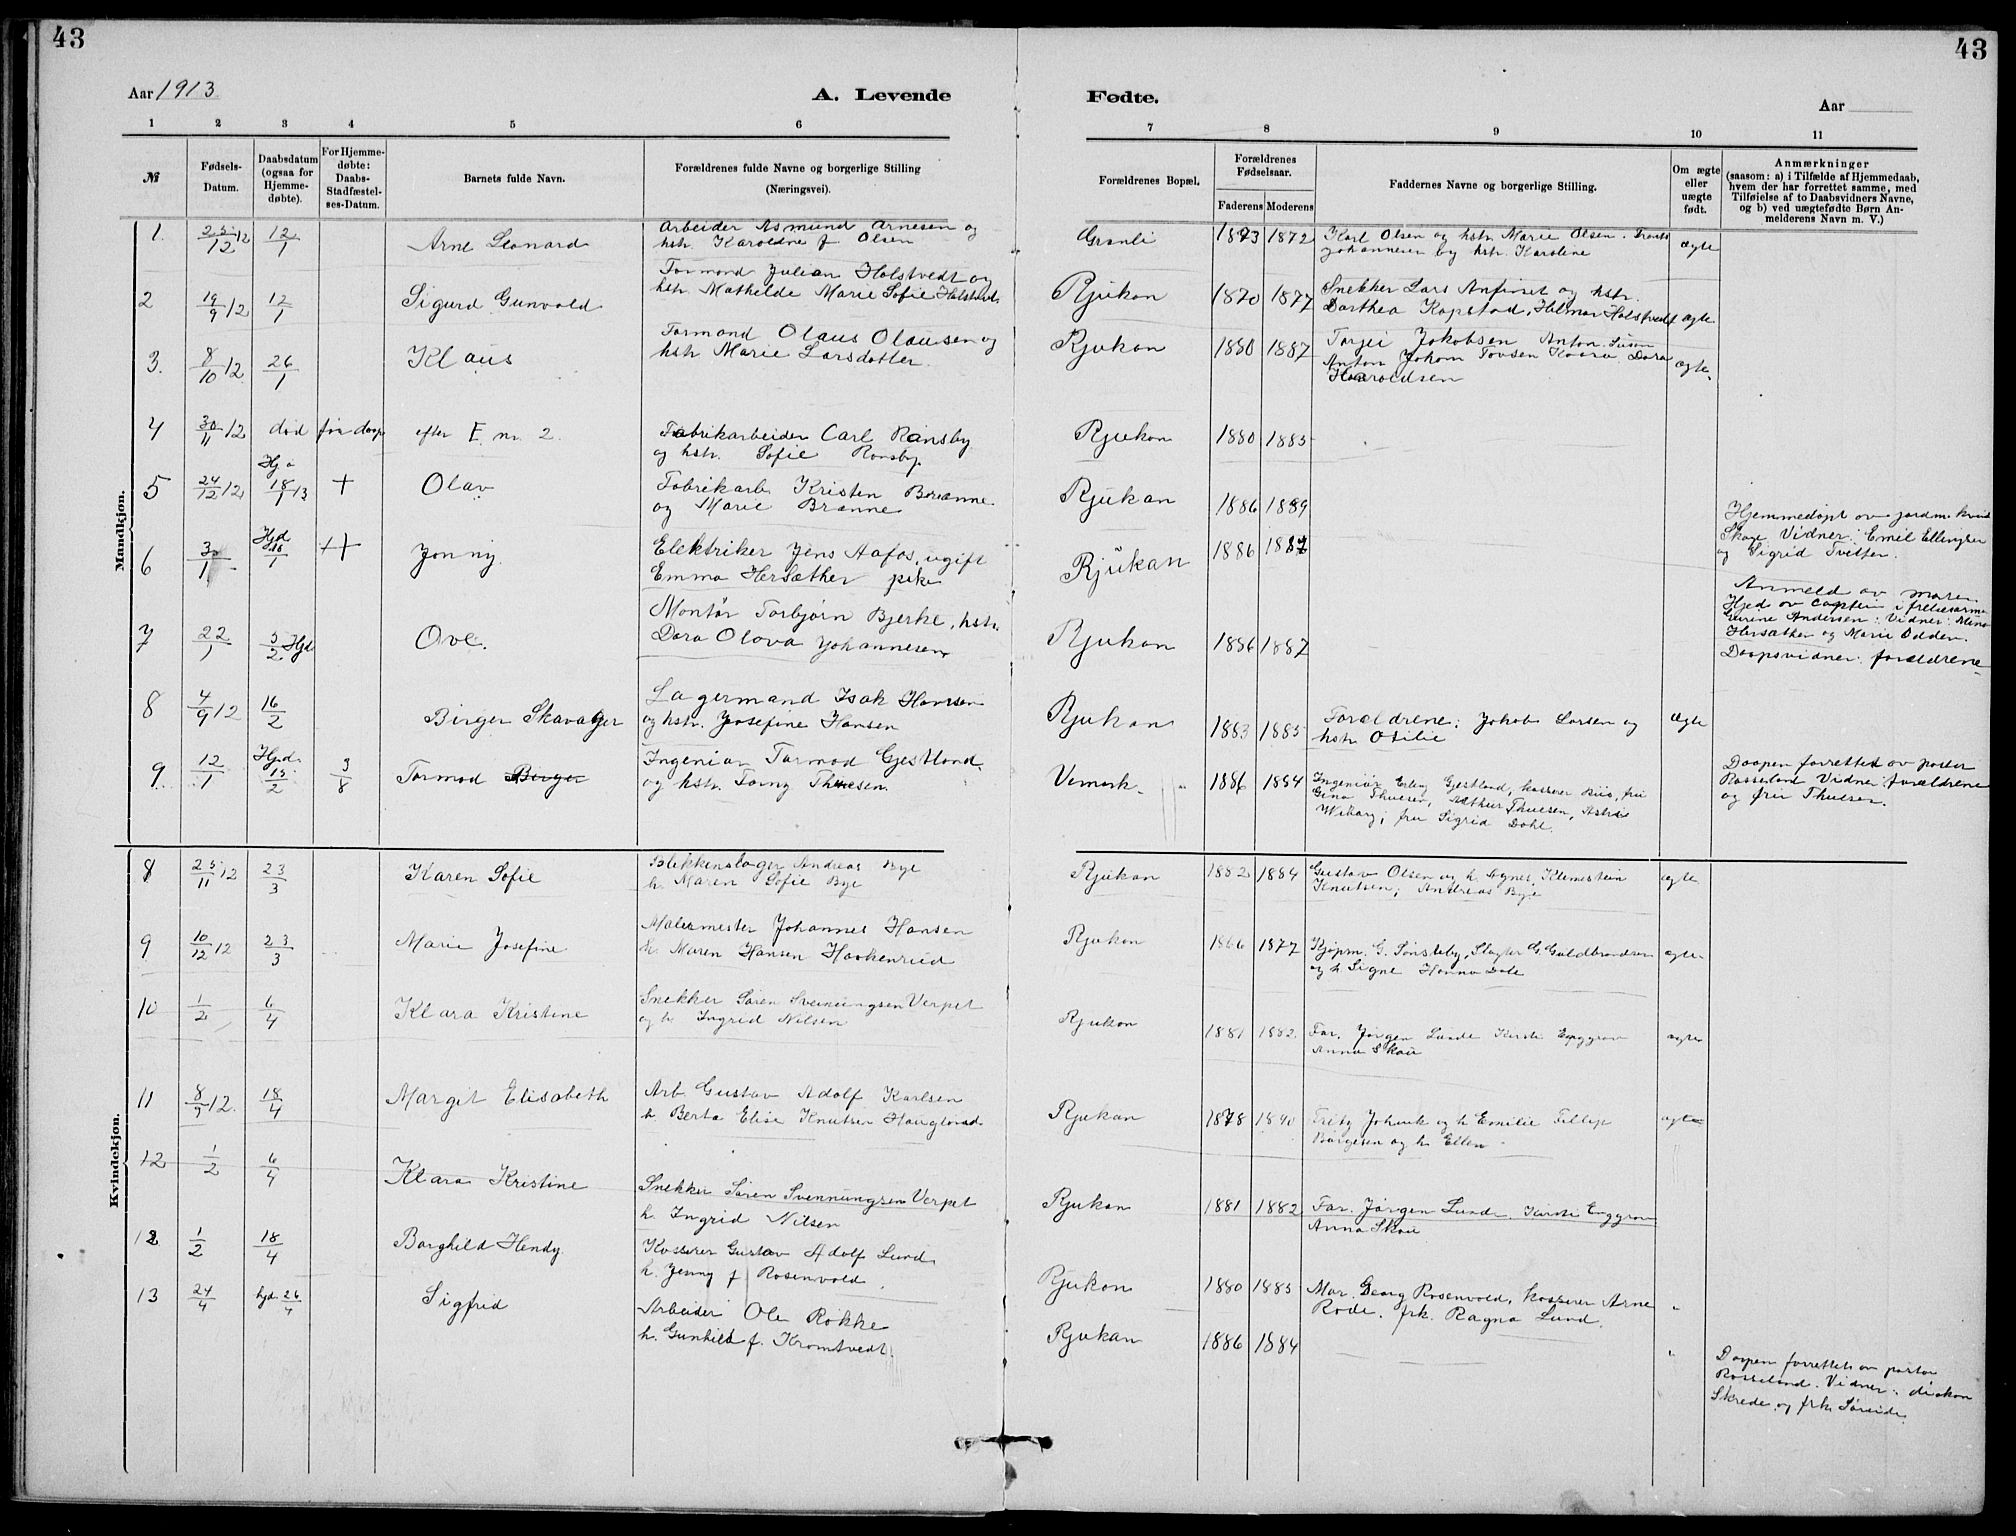 43
43
Aar 1913.
A. Levende
Fødte.
Aar
1 2 3 4 5 6 7 8 9 10 11
№
Fødsels-Datum.
Daabsdatum (ogsaa for Hjemme-døbte).
For Hjemme-døbte: Daabs-Stadfæstel-ses-Datum.
Barnets fulde Navn.
Forældrenes fulde Navne og borgerlige Stilling
(Næringsvei).
Forældrenes Bopæl.
Forældrenes Fødselsaar.
Faderens Moderens
Faddernes Navne og borgerlige Stilling.
Om ægte eller uægte født.
Anmærkninger
(saasom: a) i Tilfælde af Hjemmedaab,
hvem der har forrettet samme, med
Tilføielse af to Daabsvidners Navne,
og b) ved uægtefødte Børn An-
melderens Navn m. V.)
Mandkjøn.
1. 25/12 12 12/1 Arne Leonard
Arbeider Asmund Arnesen og
hstr. Karoldne f Olsen
Grønli 1873 1872
Karl Olsen og hstr. Marie Olsen.
Johannesen og hstr. Karoline
ægte
2 19/9 12 12/1 Sigurd Gunvald
Formand Julian Holstvedt og
hstr. Mathilde Marie Sofie Holstvedt
Rjukan 1870 1877
Snekker Lars Anfinset og hstr.
Dorthea Kopstad, Hilmar Holstvedt
ægte
3. 8/10 12 26/1 Klaus
Formand Olaus Olausen og
hstr Marie Larsdatter.
Rjukan 1880 1887
Torjei Jakobsen Anton
Anton Johan Tovsen Dora
Haraldsen
ægte.
4 30/11 12 død før daap efter E nr. 2.
Fabrikarbeider Carl Ransby
og hstr. Sofie Ransby.
Rjukan 1880 1885
5 24/12 12 Hjd 18/1 13 + Olav
Fabrikarb. Kristen Brænne
og Marie Brænne
Rjukan 1886 1889
Hjemmedøpt av jordm.
Skage Vidner: Emil Ellingsen
og Sigrid Tveiten.
6 Hjd ++ Jonny.
Elektriker Jens Aafos, ugift
Emma Hersæther pike
Rjukan 1886 1887
Anmeld av moren
Hjd av captein i frelsesarme
Andersen: Vidner:
Hersæther og Marie Odden.
7 22/1 5/2 Hjd Ove.
Montør Torbjørn Bjerke, hstr.
Dora Olava Johannesen
Rjukan 1886 1887
Daapsvidner: forældrene
8 4/9 12 16/2 Birger Skavager
Lagermand Isak Hansen
og hstr. Josefine Hansen
Rjukan 1883 1885
Forældrene: Jakob Larsen og
hstr Otilie
ægte
9. 12/1 Hjd. 15/2 3/8 Tormod Birger
Ingeniør Tormod Gjestland
og hstr. Tomy Thuesen.
Vemork 1886 1884
Ingeniør Erling Gjestland, kasserer Riis, fru
Gina Thuesen, Arthur Thuesen, Astrid
Wiborg, fru Sigrid Dahl.
Daapen forrettet av pastor
Rosseland Vidner: forældrene
og fru Thuesen.
Kvindekjøn.
8 25/11 12 23/3 Karen Sofie
Blikkenslager Andreas Bye
h. Maren Sofie Bye
Rjukan 1882 1884
Gustav Olsen og h. Agnes, Klemetsen
Knutsen, Andreas Bye
ægte
9 10/12 12 23/3 Marie Josefine
Malermester Johannes Hansen
h. Maren Hansen Haakenrud
Rjukan 1866 1877
Kjøpm. G. Sønsteby, Slagter G. Guldbrandsen
og h. Signe Hanna Dale
ægte.
10 1/2 6/4 Klara Kristine
Snekker Søren Sveinungsen Verpet
og h. Ingrid Nilsen
Rjukan 1881 1882.
Far. Jørgen Lunde Kirsti Enggrav
Anna Skau
ægte
11 8/9 12. 18/4 Margit Elisabeth
Arb. Gustav Adolf Karlsen
h. Berta Elise Knutsen Haugland
Rjukan 1878 1890
Fritz og h Emilie Fillip
Børgesen og h. Ellen
ægte
12 1/2 6/4 Klara Kristine
Snekker Søren Svennungsen Verpet
h. Ingrid Nilsen
Rjukan 1881 1882
Far. Jørgen Lunde. Kirsti Enggrav
Anna Skau
12 1/2 18/4 Borghild Hendy
Kasserer Gustav Adolf Lund
h. Jenny f Rosenvold.
Rjukan 1880 1885
Mar. Georg Rosenvold, kasserer Arne
Rode. frk. Ragna Lund.
"
13 24/4 hjd. 26/4 Sigfrid
Arbeider Ole Rokke
h. Gunhild f. Kromtvedt.
Rjukan 1886 1884
"
Daapen forrettet av pastor
Rosseland. Vidner: diakon
Skrede og frk. Søreide.